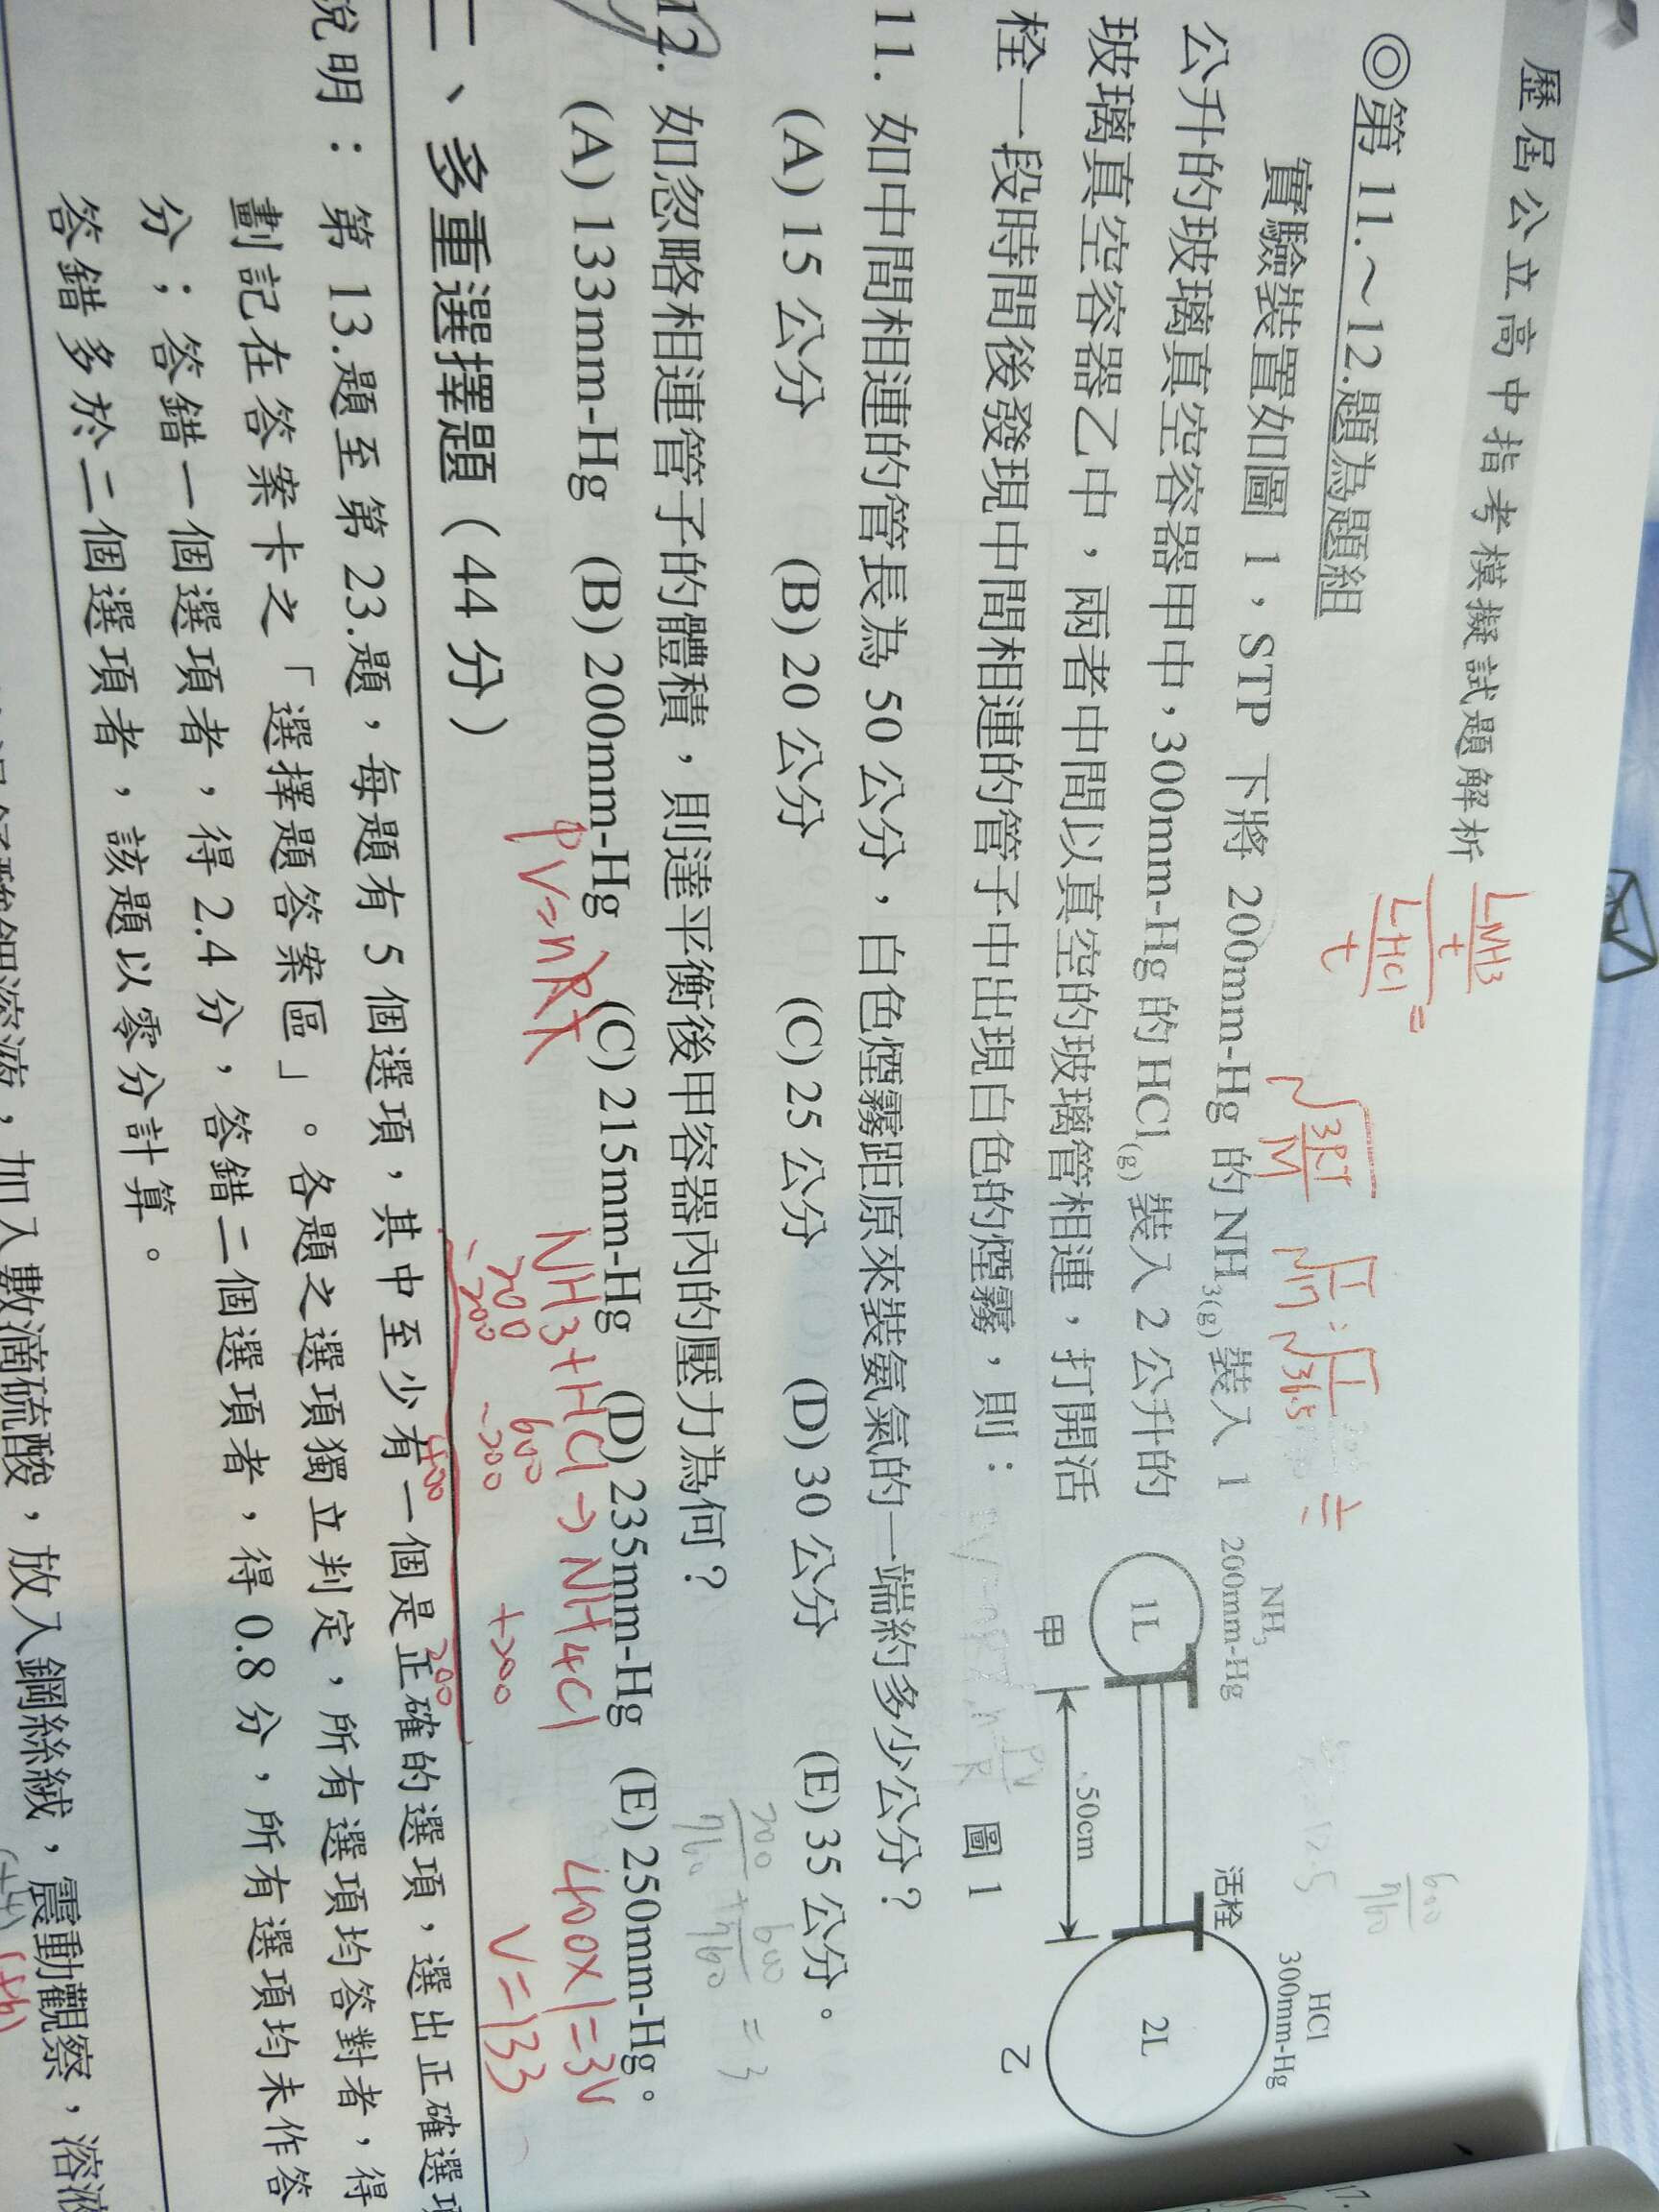 歷屆公立高中指考模擬試題解析
◎第 11.～12.題為題組
實驗裝置如圖 1，STP 下將 200mm-Hg 的 NH3(g)裝入 1
公升的玻璃真空容器甲中，300mm-Hg 的 HCl(g)裝入 2 公升的
玻璃真空容器乙中，兩者中間以真空的玻璃管相連，打開活
栓一段時間後發現中間相連的管子中出現白色的煙霧，則：
NH3
200mm-Hg
1L
甲
50cm
活栓
HCl
300mm-Hg
2L
乙
圖 1
11. 如中間相連的管長為 50 公分，白色煙霧距原來裝氨氣的一端約多少公分？
(A) 15 公分 (B) 20 公分 (C) 25 公分 (D) 30 公分 (E) 35 公分。
12. 如忽略相連管子的體積，則達平衡後甲容器內的壓力為何？
(A) 133mm-Hg (B) 200mm-Hg (C) 215mm-Hg (D) 235mm-Hg (E) 250mm-Hg。
PV=nRT
NH3+HCl→NH4Cl
200 600
-200 -200 +200
400 200
400×1=3V
V=133
LNH3
t
LHCl
t
=
√3RT
M
200
760
+
600
760
= 3
600
760
二、多重選擇題（44 分）
說明：第 13.題至第 23.題，每題有 5 個選項，其中至少有一個是正確的選項，選出正確選項
劃記在答案卡之「選擇題答案區」。各題之選項獨立判定，所有選項均答對者，得
分；答錯一個選項者，得 2.4 分，答錯二個選項者，得 0.8 分，所有選項均未作答
答錯多於二個選項者，該題以零分計算。
酸鉀溶液，加入數滴硫酸，放入鋼絲絨，震動觀察，溶液